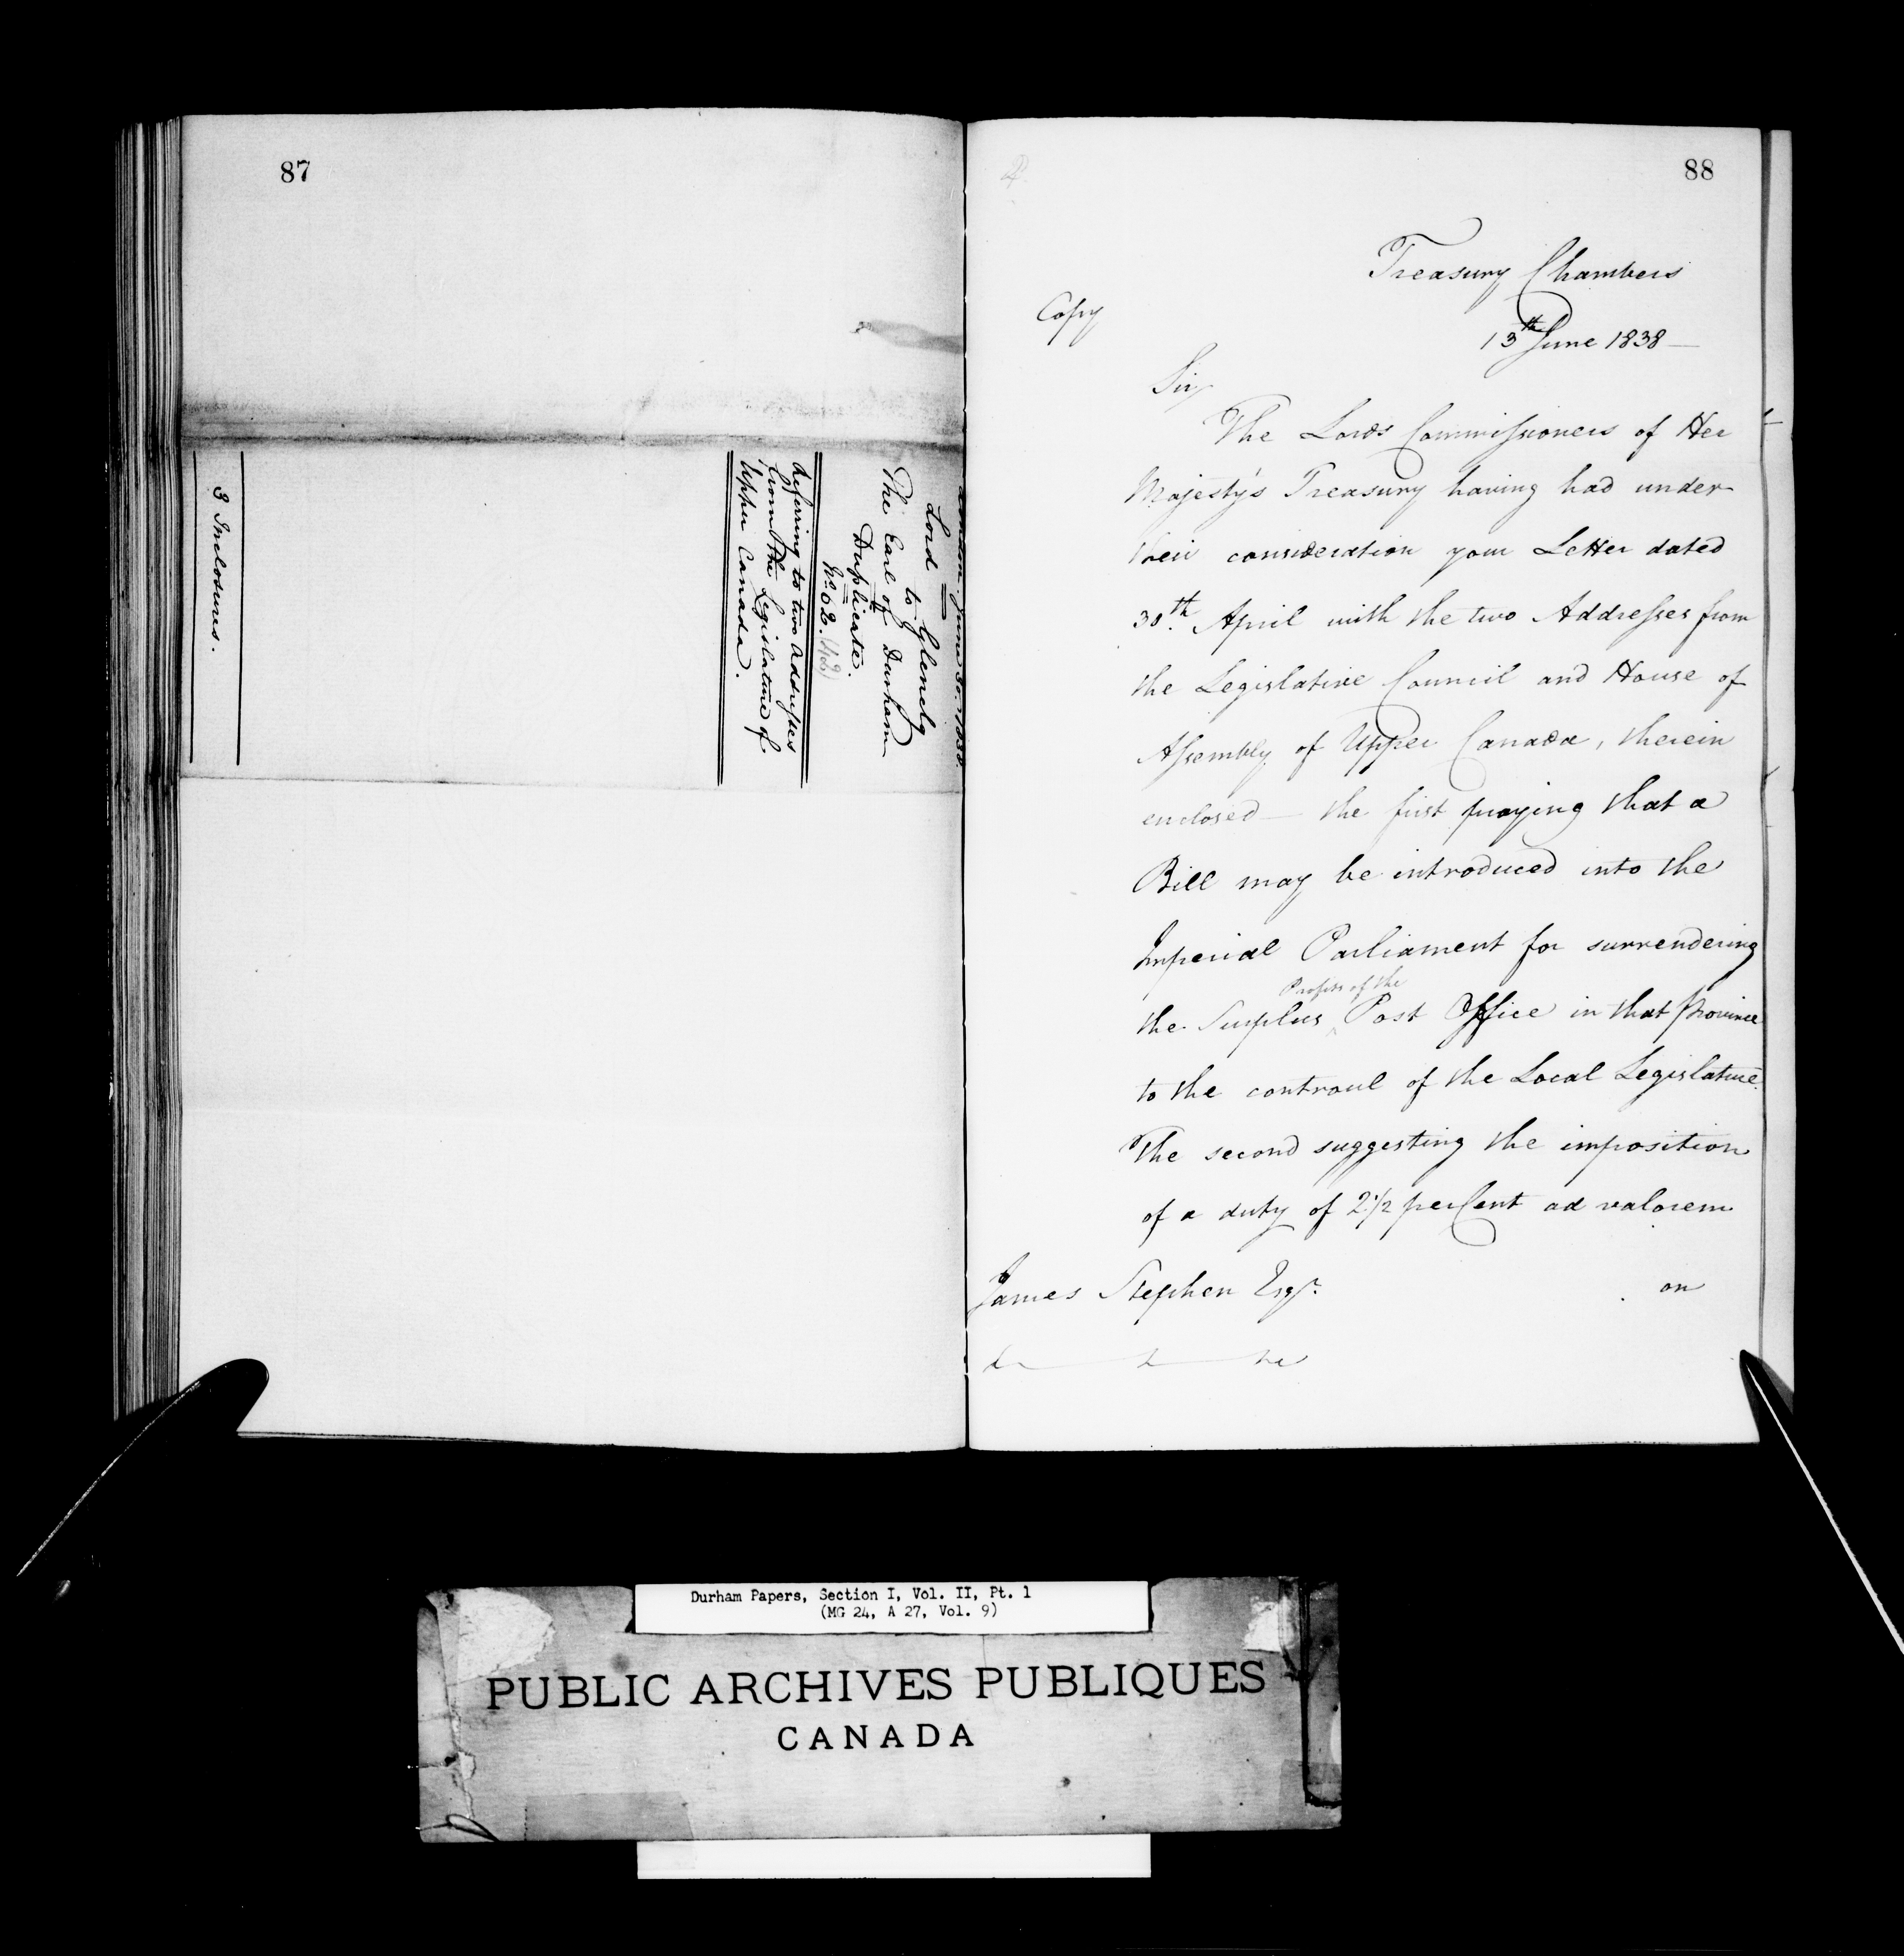 87
London June 30. 1838.
Lord Glenelg
to
The Earl of Durham
Duplicate.
No. 62. (42)
Referring to two Addresses
from the Legislature of
Upper Canada.
3 Inclosures.
88
Treasury Chambers
13th June 1838
Copy
Sir,
The Lords Commissioners of Her
Majesty's Treasury having had under
their consideration your Letter dated
30th. April with the two Addresses from
the Legislative Council and House of
Assembly of Upper Canada, therein
enclosed — the first praying that a
Bill may be introduced into the
Imperial Parliament for surrendering
the Surplus Profits of the Post Office in that Province
to the controul of the Local Legislature.
The second suggesting the imposition
of a duty of 2 1/2 per Cent ad valorem
on
James Stephen Esqr.
&c &c &c
Durham Papers, Section I, Vol. II, Pt. 1
(MG 24, A 27, Vol. 9)
PUBLIC ARCHIVES PUBLIQUES
CANADA